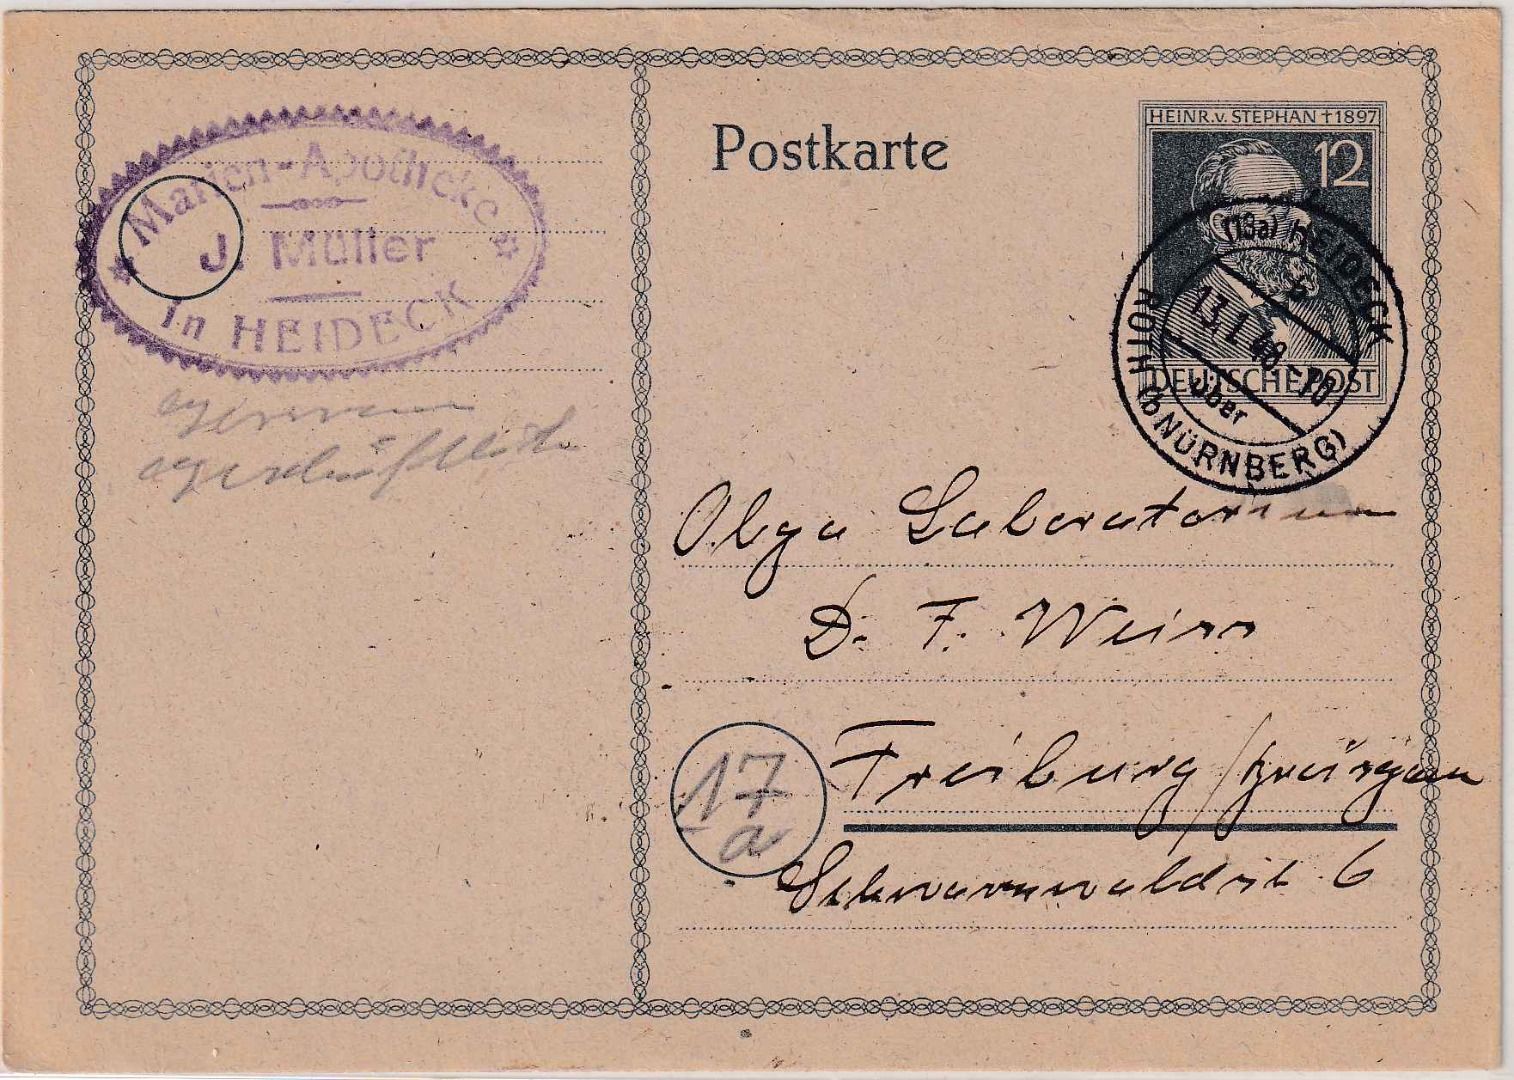 Marien-Apotheke
J. Müller
in HEIDECK
Postkarte
HEINR. v. STEPHAN †1897
12
DEUTSCHE POST
(13a) HEIDECK
b
13.1.48.-10
über
ROTH (b NÜRNBERG)
Olga Laboratorium
D. F. Weiss
17
a
Freiburg/Breisgau
Schwarzwaldstr 6